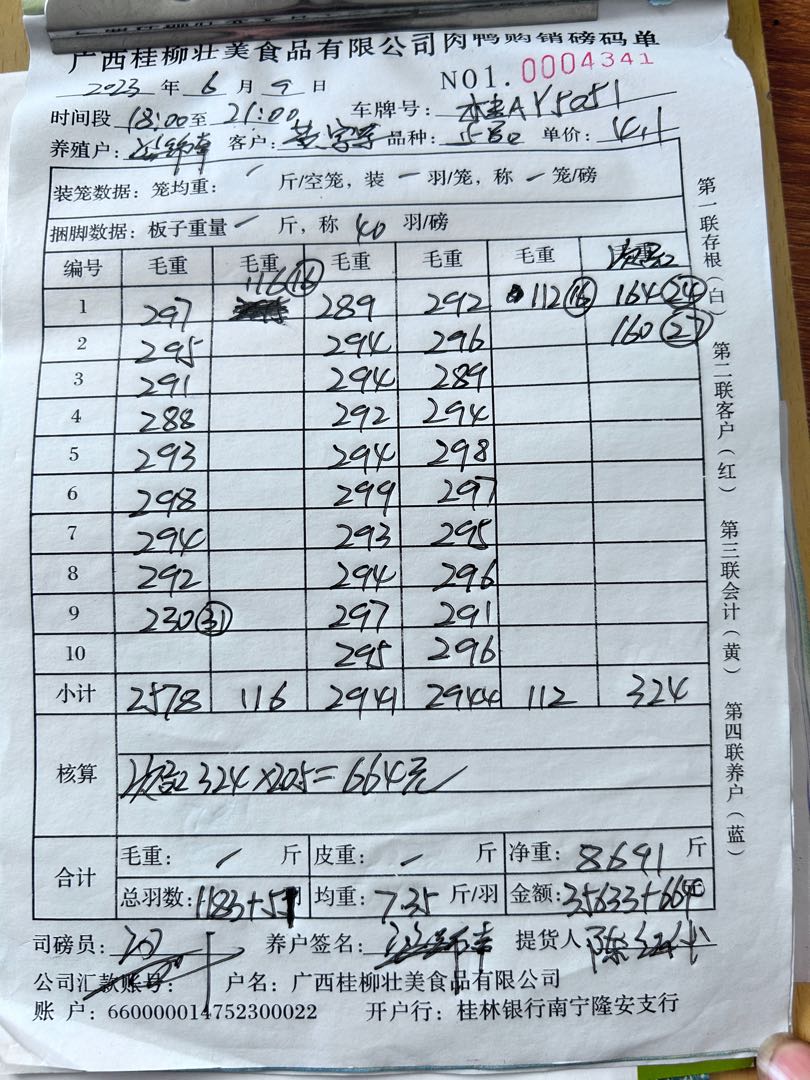 广西桂柳壮美食品有限公司肉鸭购销磅码单
2023 年 6 月 9 日 NO1. 0004341
时间段 18:00 至 21:00 车牌号: 桂AY5051
养殖户: 客户: 品种: 单价: 4.1
装笼数据: 笼均重: / 斤/空笼, 装 一 羽/笼, 称 一 笼/磅
捆脚数据: 板子重量 一 斤, 称 40 羽/磅
编号 毛重 毛重 毛重 毛重 毛重
1 297 116 (16) 289 292 112 (16) 164 (24)
2 295 294 296 160 (27)
3 291 294 289
4 288 292 294
5 293 294 298
6 298 299 297
7 294 293 295
8 292 294 296
9 230 (31) 297 291
10 295 296
小计 2578 116 2941 2944 112 324
核算 324×205=664元
合计 毛重: / 斤 皮重: 一 斤 净重: 8691 斤
总羽数: 1183+51 均重: 7.35 斤/羽 金额: 35633+664元
司磅员: 养户签名: 提货人
公司汇款账号: 户名: 广西桂柳壮美食品有限公司
账 户: 660000014752300022 开户行: 桂林银行南宁隆安支行
第一联存根(白) 第二联客户(红) 第三联会计(黄) 第四联养户(蓝)